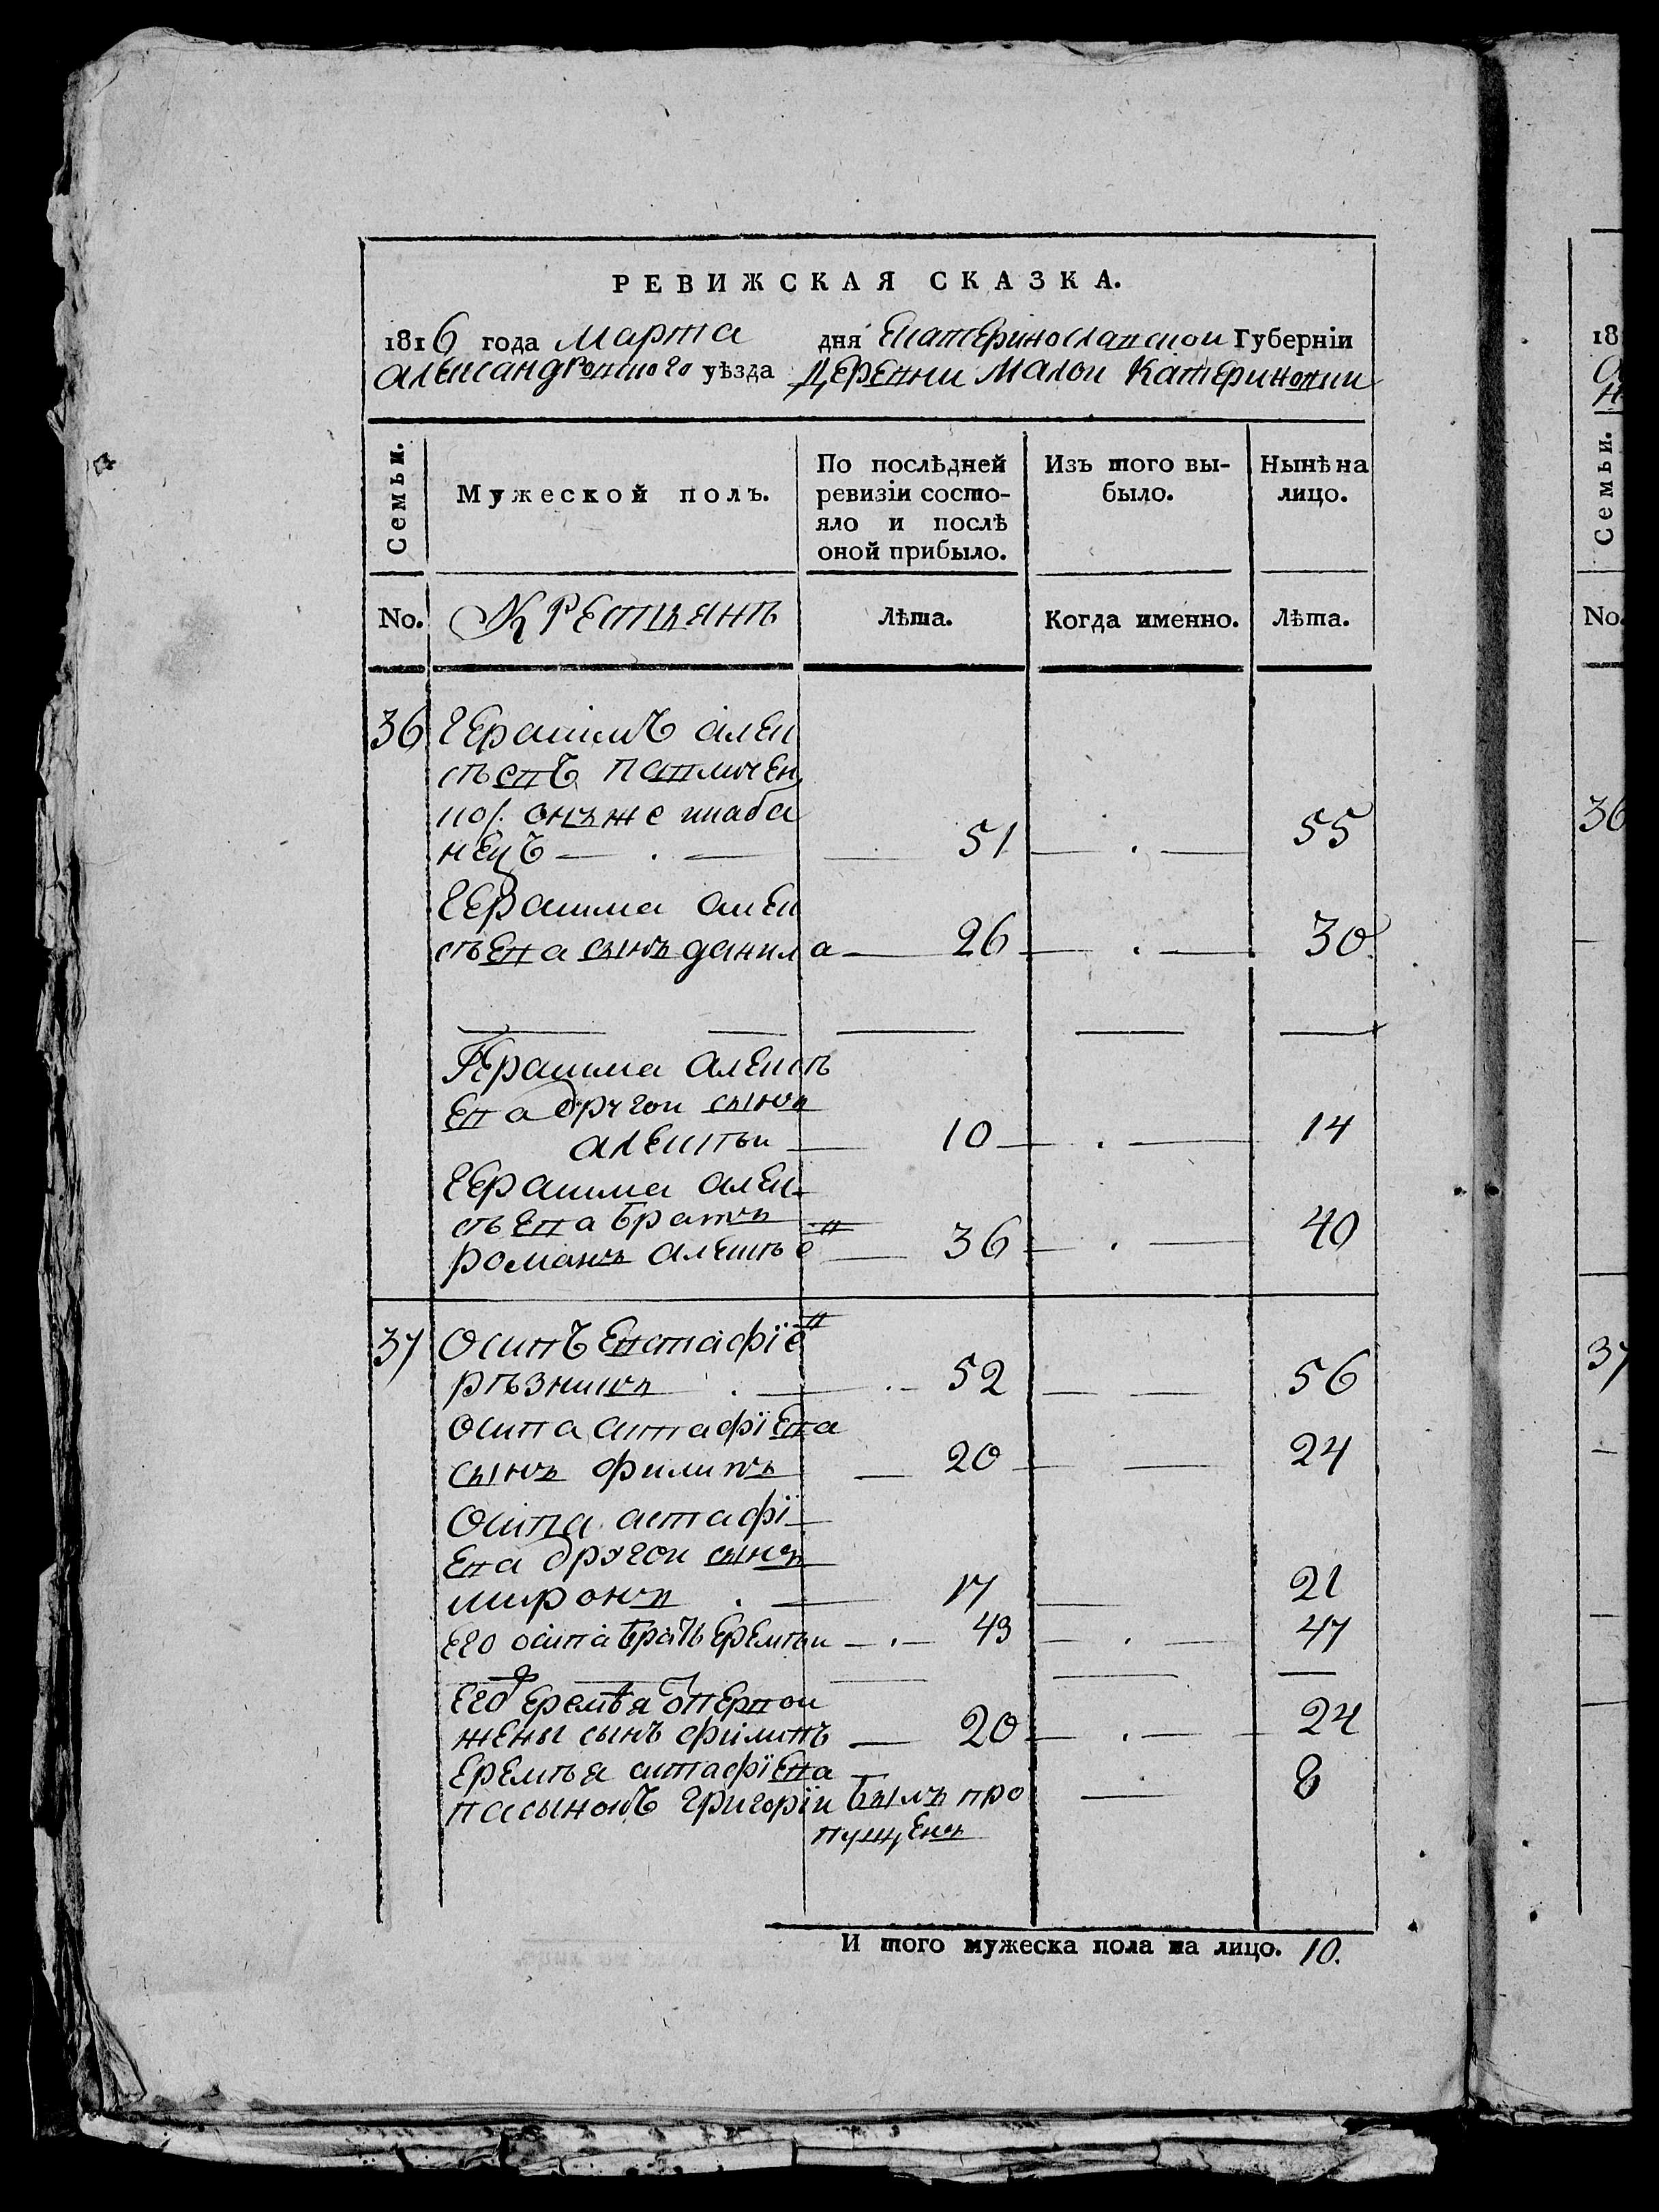 РЕВИЖСКАЯ СКАЗКА.
1816 года Марта дня Екатеринославской Губерніи
Александровского уѣзда Деревни Малои Катериновки
Семьи.
Мужеской полъ.
По послѣдней ревизіи состояло и послѣ оной прибыло.
Изъ того выбыло.
Нынѣ на лицо.
No.
Крестьянъ
Лѣта.
Когда именно.
Лѣта.
36 Герасимъ алек
сѣевъ
онъже
нецъ 51 55
Герасима алек
сѣева сынъ данила 26 30
Герасима алексѣ
ева другои сынъ
алексѣи 10 14
Герасима алек
сѣева братъ
романъ алексѣевъ 36 40
37 Осипъ Евстафїев
рѣзникъ 52 56
осипа астафїева
сынъ филипъ 20 24
Осипа астафї
ева другои сынъ
миронъ 17 21
его осипа братъ еремѣи 43 47
его еремѣя отпервои
жены сынъ филипъ 20 24
еремѣя астафїева
пасынокъ григорїи былъ про 8
пущенъ
И того мужеска пола на лицо. 10.
18
Семьи.
No.
36
37